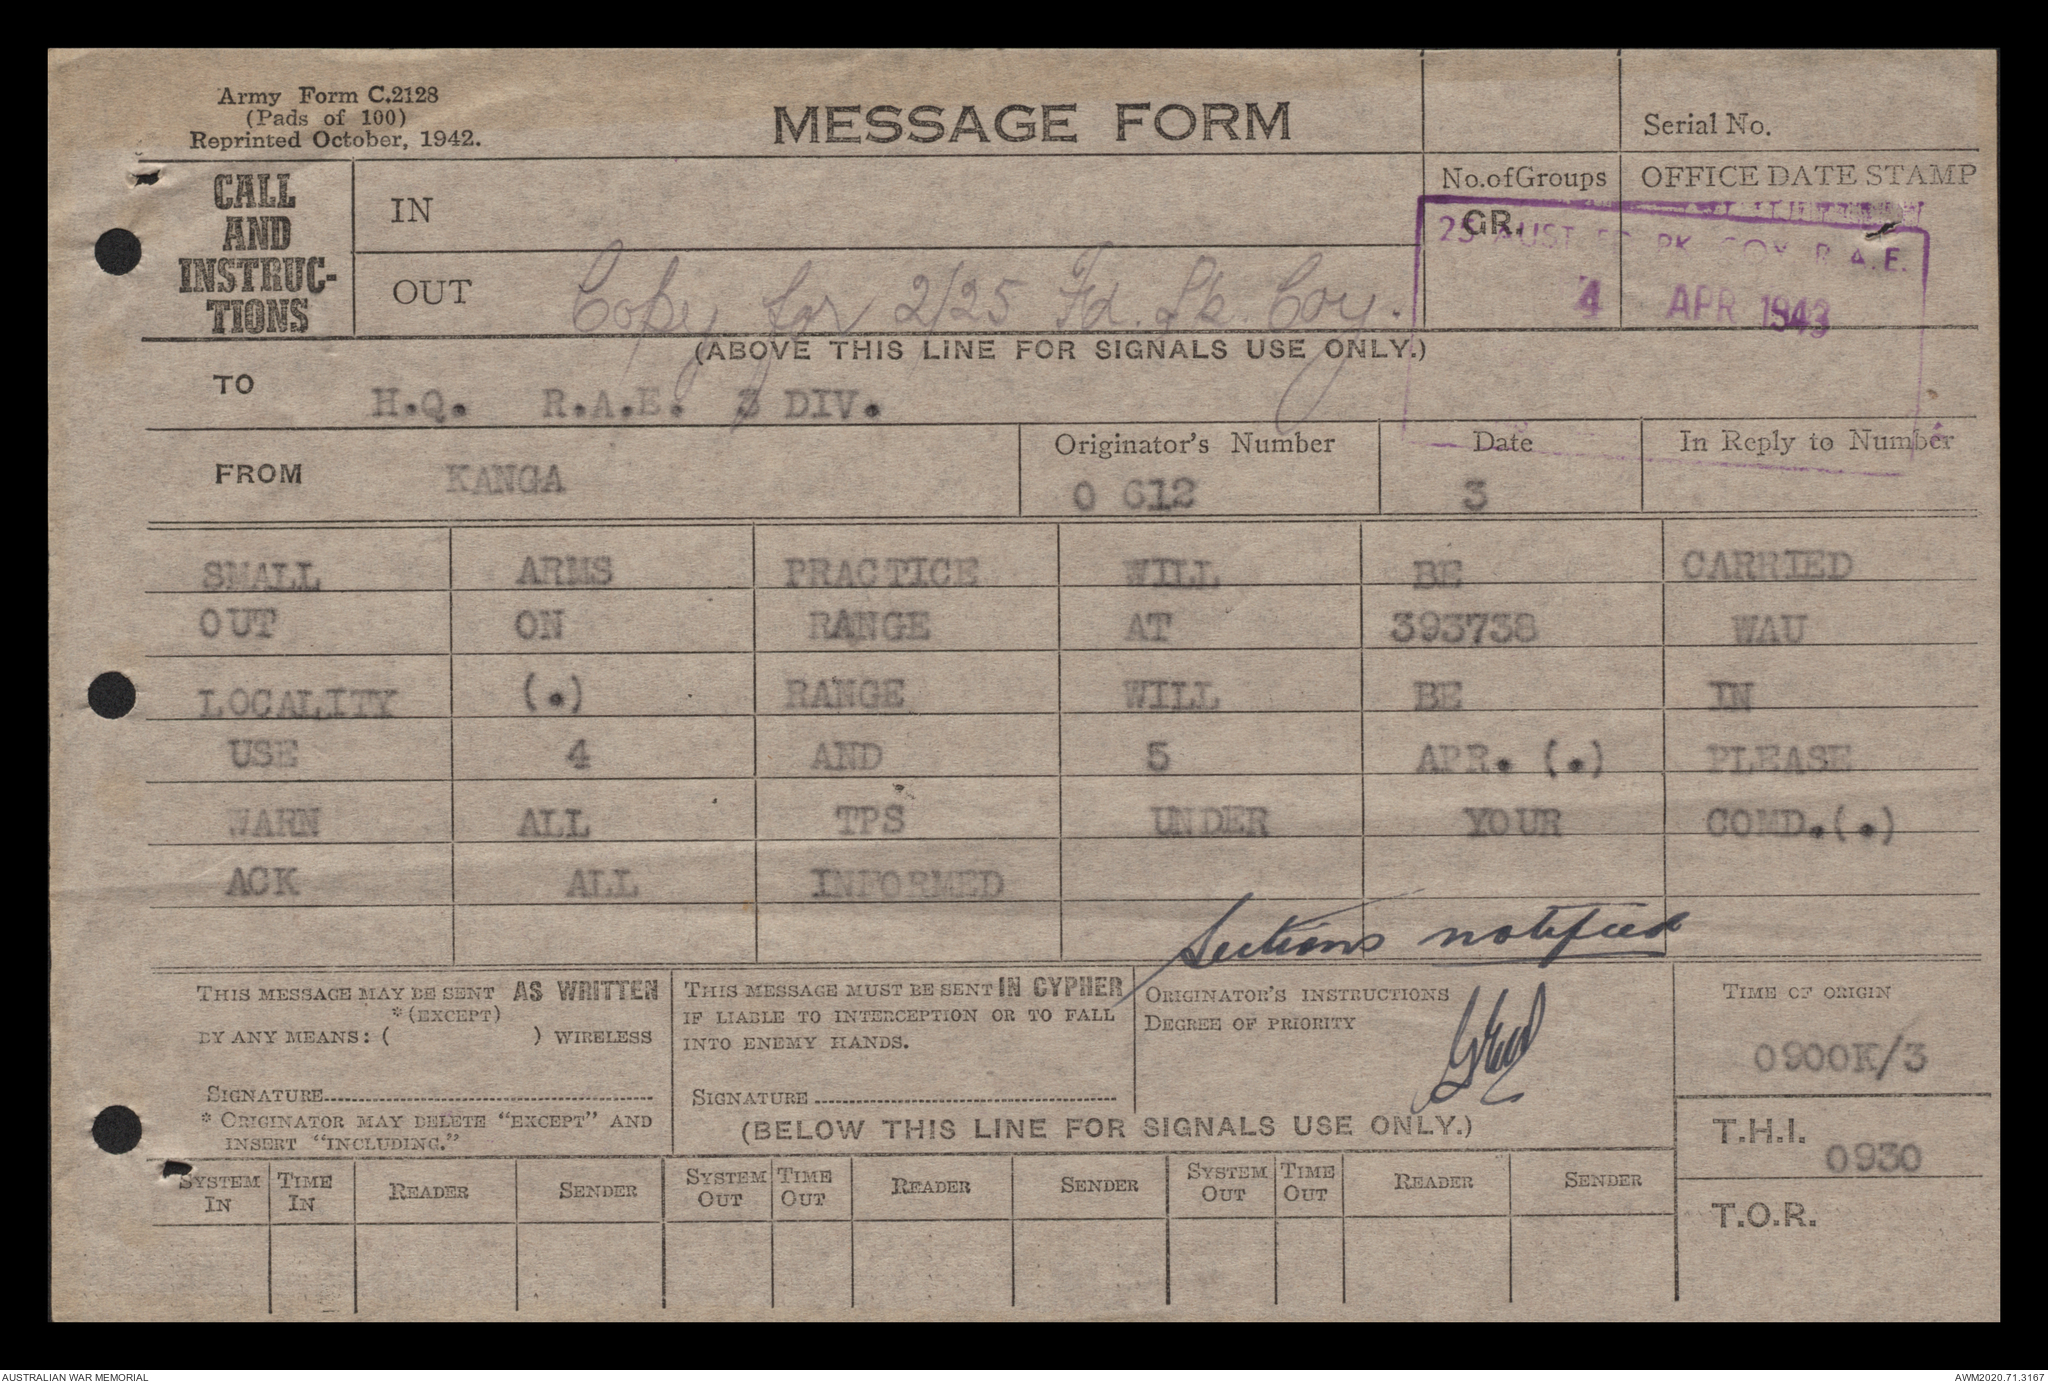 Army Form C.2128
(Pads of 100)
Reprinted October, 1942.
MESSAGE FORM
Serial No.
CALL
AND
INSTRUC-
TIONS
IN
No. of Groups
GR.
OFFICE DATE STAMP
25 AUST FD PK COY R.A.E.
4 APR 1943
OUT Copy for 2/25 Fd. Pk. Coy.
(ABOVE THIS LINE FOR SIGNALS USE ONLY.)
TO H.Q. R.A.E. 3 DIV.
FROM KANGA
Originator's Number
O 612
Date
3
In Reply to Number
SMALL ARMS PRACTICE WILL BE CARRIED
OUT ON RANGE AT 393738 WAU
LOCALITY (.) RANGE WILL BE IN
USE 4 AND 5 APR. (.) PLEASE
WARN ALL TPS UNDER YOUR COMD.(.)
ACK ALL INFORMED
Sections notified
THIS MESSAGE MAY BE SENT AS WRITTEN
*(EXCEPT)
BY ANY MEANS: ( ) WIRELESS
SIGNATURE
* ORIGINATOR MAY DELETE "EXCEPT" AND
INSERT "INCLUDING."
THIS MESSAGE MUST BE SENT IN CYPHER
IF LIABLE TO INTERCEPTION OR TO FALL
INTO ENEMY HANDS.
SIGNATURE
ORIGINATOR'S INSTRUCTIONS
DEGREE OF PRIORITY
TIME OF ORIGIN
0900K/3
(BELOW THIS LINE FOR SIGNALS USE ONLY.)
T.H.I. 0930
T.O.R.
SYSTEM IN
TIME IN
READER
SENDER
SYSTEM OUT
TIME OUT
READER
SENDER
SYSTEM OUT
TIME OUT
READER
SENDER
AUSTRALIAN WAR MEMORIAL
AWM2020.71.3167